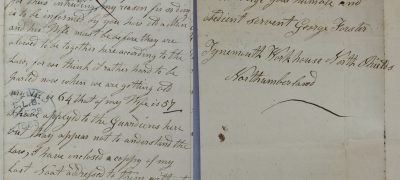 for thus intruding my reason for so doing
is to be informed by your what age a Man
and his Wife must be before they are
allowed to be together here according to the
Law, for we think it rather hard to be
parted now when we are getting old
64 that of my Wife is 57
I have applied to the Guardians here
but they appear not to understand the
Law, I have enclosed a coppy of my
Last addressed to them
your humble and
obedient servant George Forster
Tynemouth Workhouse North Shields
Northumberland